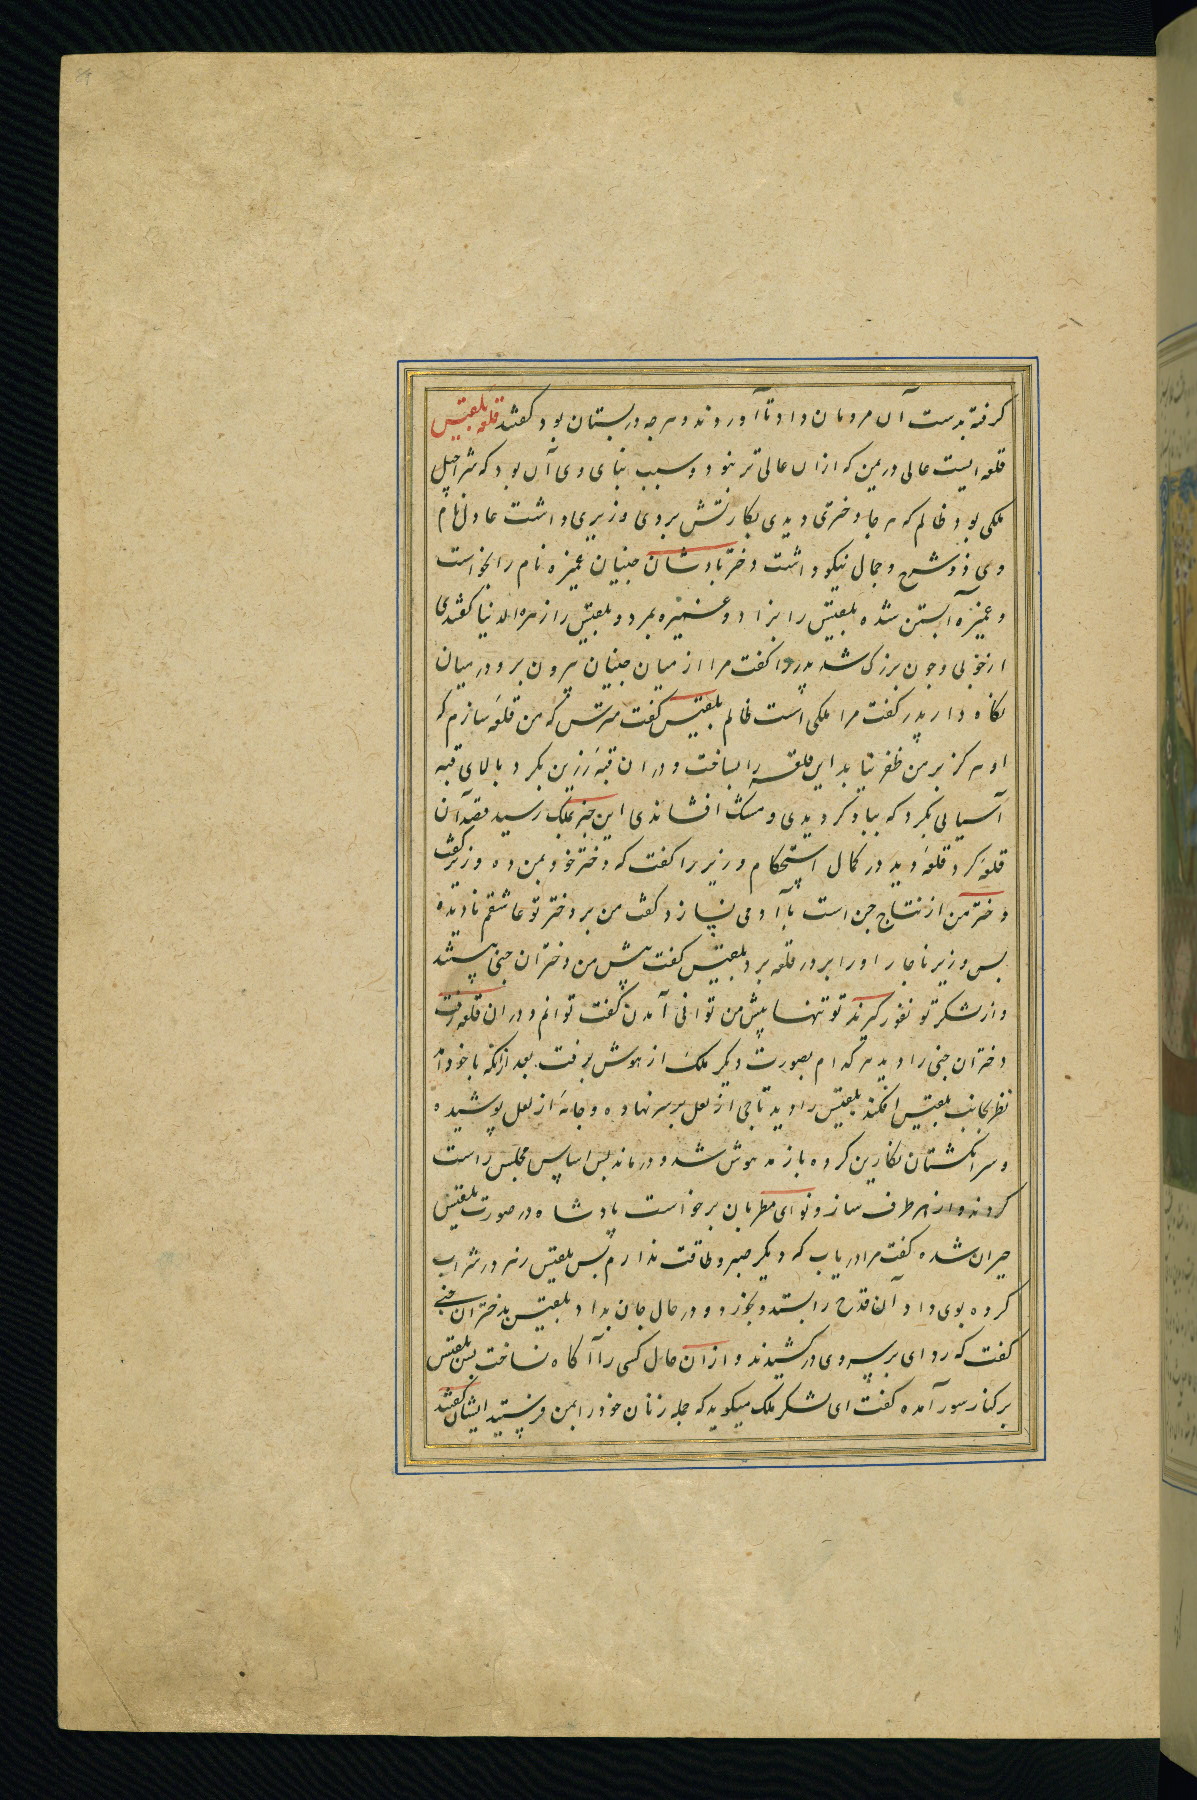 کرفته بدست آن مردمان داد تا آوردند و هرچه در بستان بود کفتند قلعه بلقیس
قلعه ایست عالی در یمن که ازان عالی تر نبود و سبب بنای وی آن بود که شراحیل
ملکی بود ظالم که هر جا دختری دیدی بکارتش بردی وزیری داشت عادل نام
وی ذوشرح و جمال نیکو داشت دختر پادشاه جنیان عمیزه نام را بخواست
و عمیزه آبستن شده بلقیس را بزاد و عمیزه بمرد و بلقیس را زهره الدنیا کفتندی
از خوبی و چون بزرک شد پدر را کفت مرا از میان جنیان بیرون بر و در میان
نکاه دار پدر کفت مرا ملکی است ظالم بلقیس کفت مترس که من قلعه سازم که
او هرکز بر من ظفر نیابد این قلعه را بساخت و دران قبه زرین بکرد و بالای قبه
آسیابی بکرد که بباد کردیدی و مشک افشاندی این خبر بملک رسید قصد آن
قلعه کرد قلعه دید در کمال استحکام وزیر را کفت که دختر خود بمن ده وزیر کفت
دختر من از نتاج جن است با آدمی نسازد کفت من بر دختر تو عاشقم نادیده
پس وزیر ناچار او را بر در قلعه برد بلقیس کفت پیش من دختران جنی هستند
و از لشکر تو نفور کیرند تو تنها پیش من توانی آمدن کفت توانم و در ان قلعه رفت
دختران جنی را دید هر کدام بصورت دیکر ملک از هوش برفت بعد ازانکه با خود آمد
نظر بجانب بلقیس افکند بلقیس را دید تاجی از لعل بر سر نهاده و جامه از لعل پوشیده
و سر انکشتان نکارین کرده باز مدهوش شد و درماند پس اساس مجلس راست
کردند و از هر طرف ساز و نوای مطربان برخواست پادشاه در صورت بلقیس
حیران شده کفت مرا دریاب که دیکر صبر و طاقت ندارم پس بلقیس زهر در شراب
کرده بوی داد آن قدح را بستد و بخورد و در حال جان بداد بلقیس بدختران جنی
کفت که ردای بر سر وی درکشیدند و ازان حال کسی را آکاه نساخت پس بلقیس
بر کنار سور آمده کفت ای لشکر ملک میکوید که جمله زنان خود را بمن فرستید ایشان کفتند